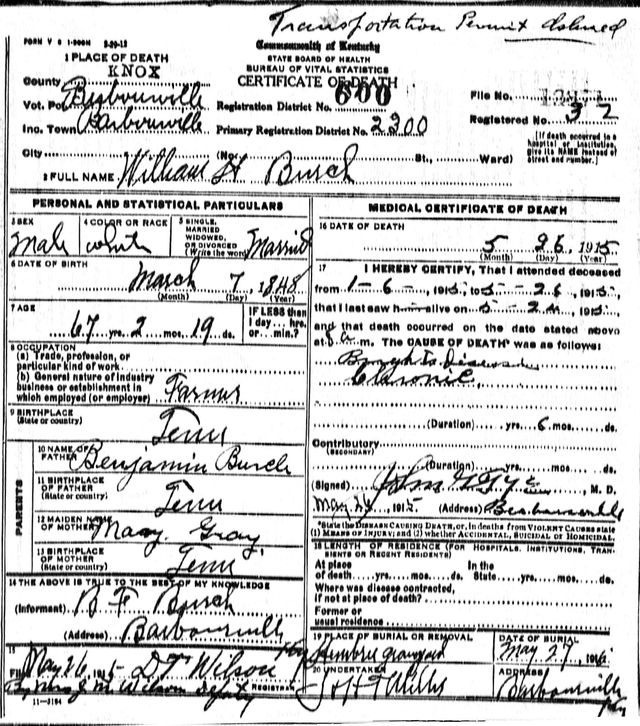 Transportation Permit Issued
FORM V S 1-
1 PLACE OF DEATH
Commonwealth of Kentucky
STATE BOARD OF HEALTH
BUREAU OF VITAL STATISTICS
CERTIFICATE OF DEATH
County KNOX
Vot. Barbourville
Registration District No. 600
File No.
Inc. Town Barbourville
Primary Registration District No. 2300
Registered No. 32
[If death occurred in a hospital or institution, give its NAME instead of street and number.]
City (No. St., Ward)
2 FULL NAME William H Burch
PERSONAL AND STATISTICAL PARTICULARS
3 SEX Male
4 COLOR OR RACE white
5 SINGLE, MARRIED WIDOWED, OR DIVORCED (Write the word) Married
6 DATE OF BIRTH
March 7, 1848
(Month) (Day) (Year)
7 AGE
67 yrs. 2 mos. 19 ds.
IF LESS than 1 day... hrs. or... min.?
8 OCCUPATION
(a) Trade, profession, or particular kind of work
(b) General nature of industry business or establishment in which employed (or employer) Farmer
9 BIRTHPLACE (State or country) Tenn
PARENTS
10 NAME OF FATHER Benjamin Burch
11 BIRTHPLACE OF FATHER (State or country) Tenn
12 MAIDEN NAME OF MOTHER Mary Gray
13 BIRTHPLACE OF MOTHER (State or country) Tenn
14 THE ABOVE IS TRUE TO THE BEST OF MY KNOWLEDGE
(Informant) B F Burch
(Address) Barbourville Ky
15
Filed May 26, 1915 D T Wilson
By Mrs J M Wilson Deputy REGISTRAR
11-3184
MEDICAL CERTIFICATE OF DEATH
16 DATE OF DEATH
5 26, 1915
(Month) (Day) (Year)
17 I HEREBY CERTIFY, That I attended deceased
from 1-6-, 1915, to 5-26, 1915,
that I last saw h alive on 5-24, 1915,
and that death occurred on the date stated above
at m. The CAUSE OF DEATH* was as follows:
Brights Disease
Chronic
(Duration) yrs. 6 mos. ds.
Contributory
(SECONDARY)
(Duration) yrs. mos. ds.
(Signed) M. D.
May 26, 1915 (Address) Barbourville
*State the DISEASE CAUSING DEATH, or, in deaths from VIOLENT CAUSES state
(1) MEANS OF INJURY; and (2) whether ACCIDENTAL, SUICIDAL or HOMICIDAL.
18 LENGTH OF RESIDENCE (FOR HOSPITALS, INSTITUTIONS, TRANSIENTS OR RECENT RESIDENTS)
At place of death yrs. mos. ds. In the State yrs. mos. ds.
Where was disease contracted,
if not at place of death?
Former or
usual residence
19 PLACE OF BURIAL OR REMOVAL
Graveyard
DATE OF BURIAL
May 27, 1915
20 UNDERTAKER
ADDRESS
Barbourville Ky